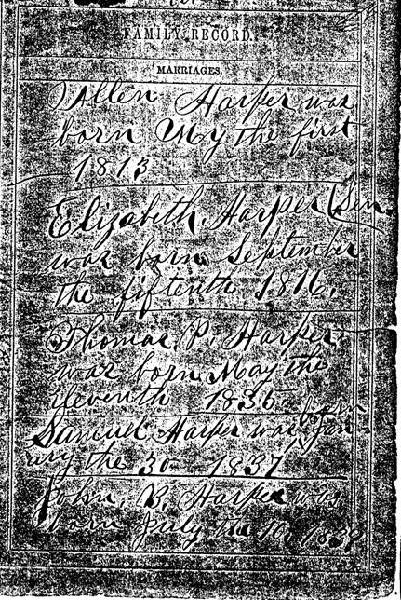 FAMILY RECORD.
MARRIAGES
Allen Harper was
born May the first
1813
Elizabeth Harper Sen
was born September
the fifteenth 1816.
Thomas P. Harper
was born May the
eleventh 1835
born
Samuel Harper was Jan
ury the 30 1837
John, B, Harper was
born July the 10, 1839